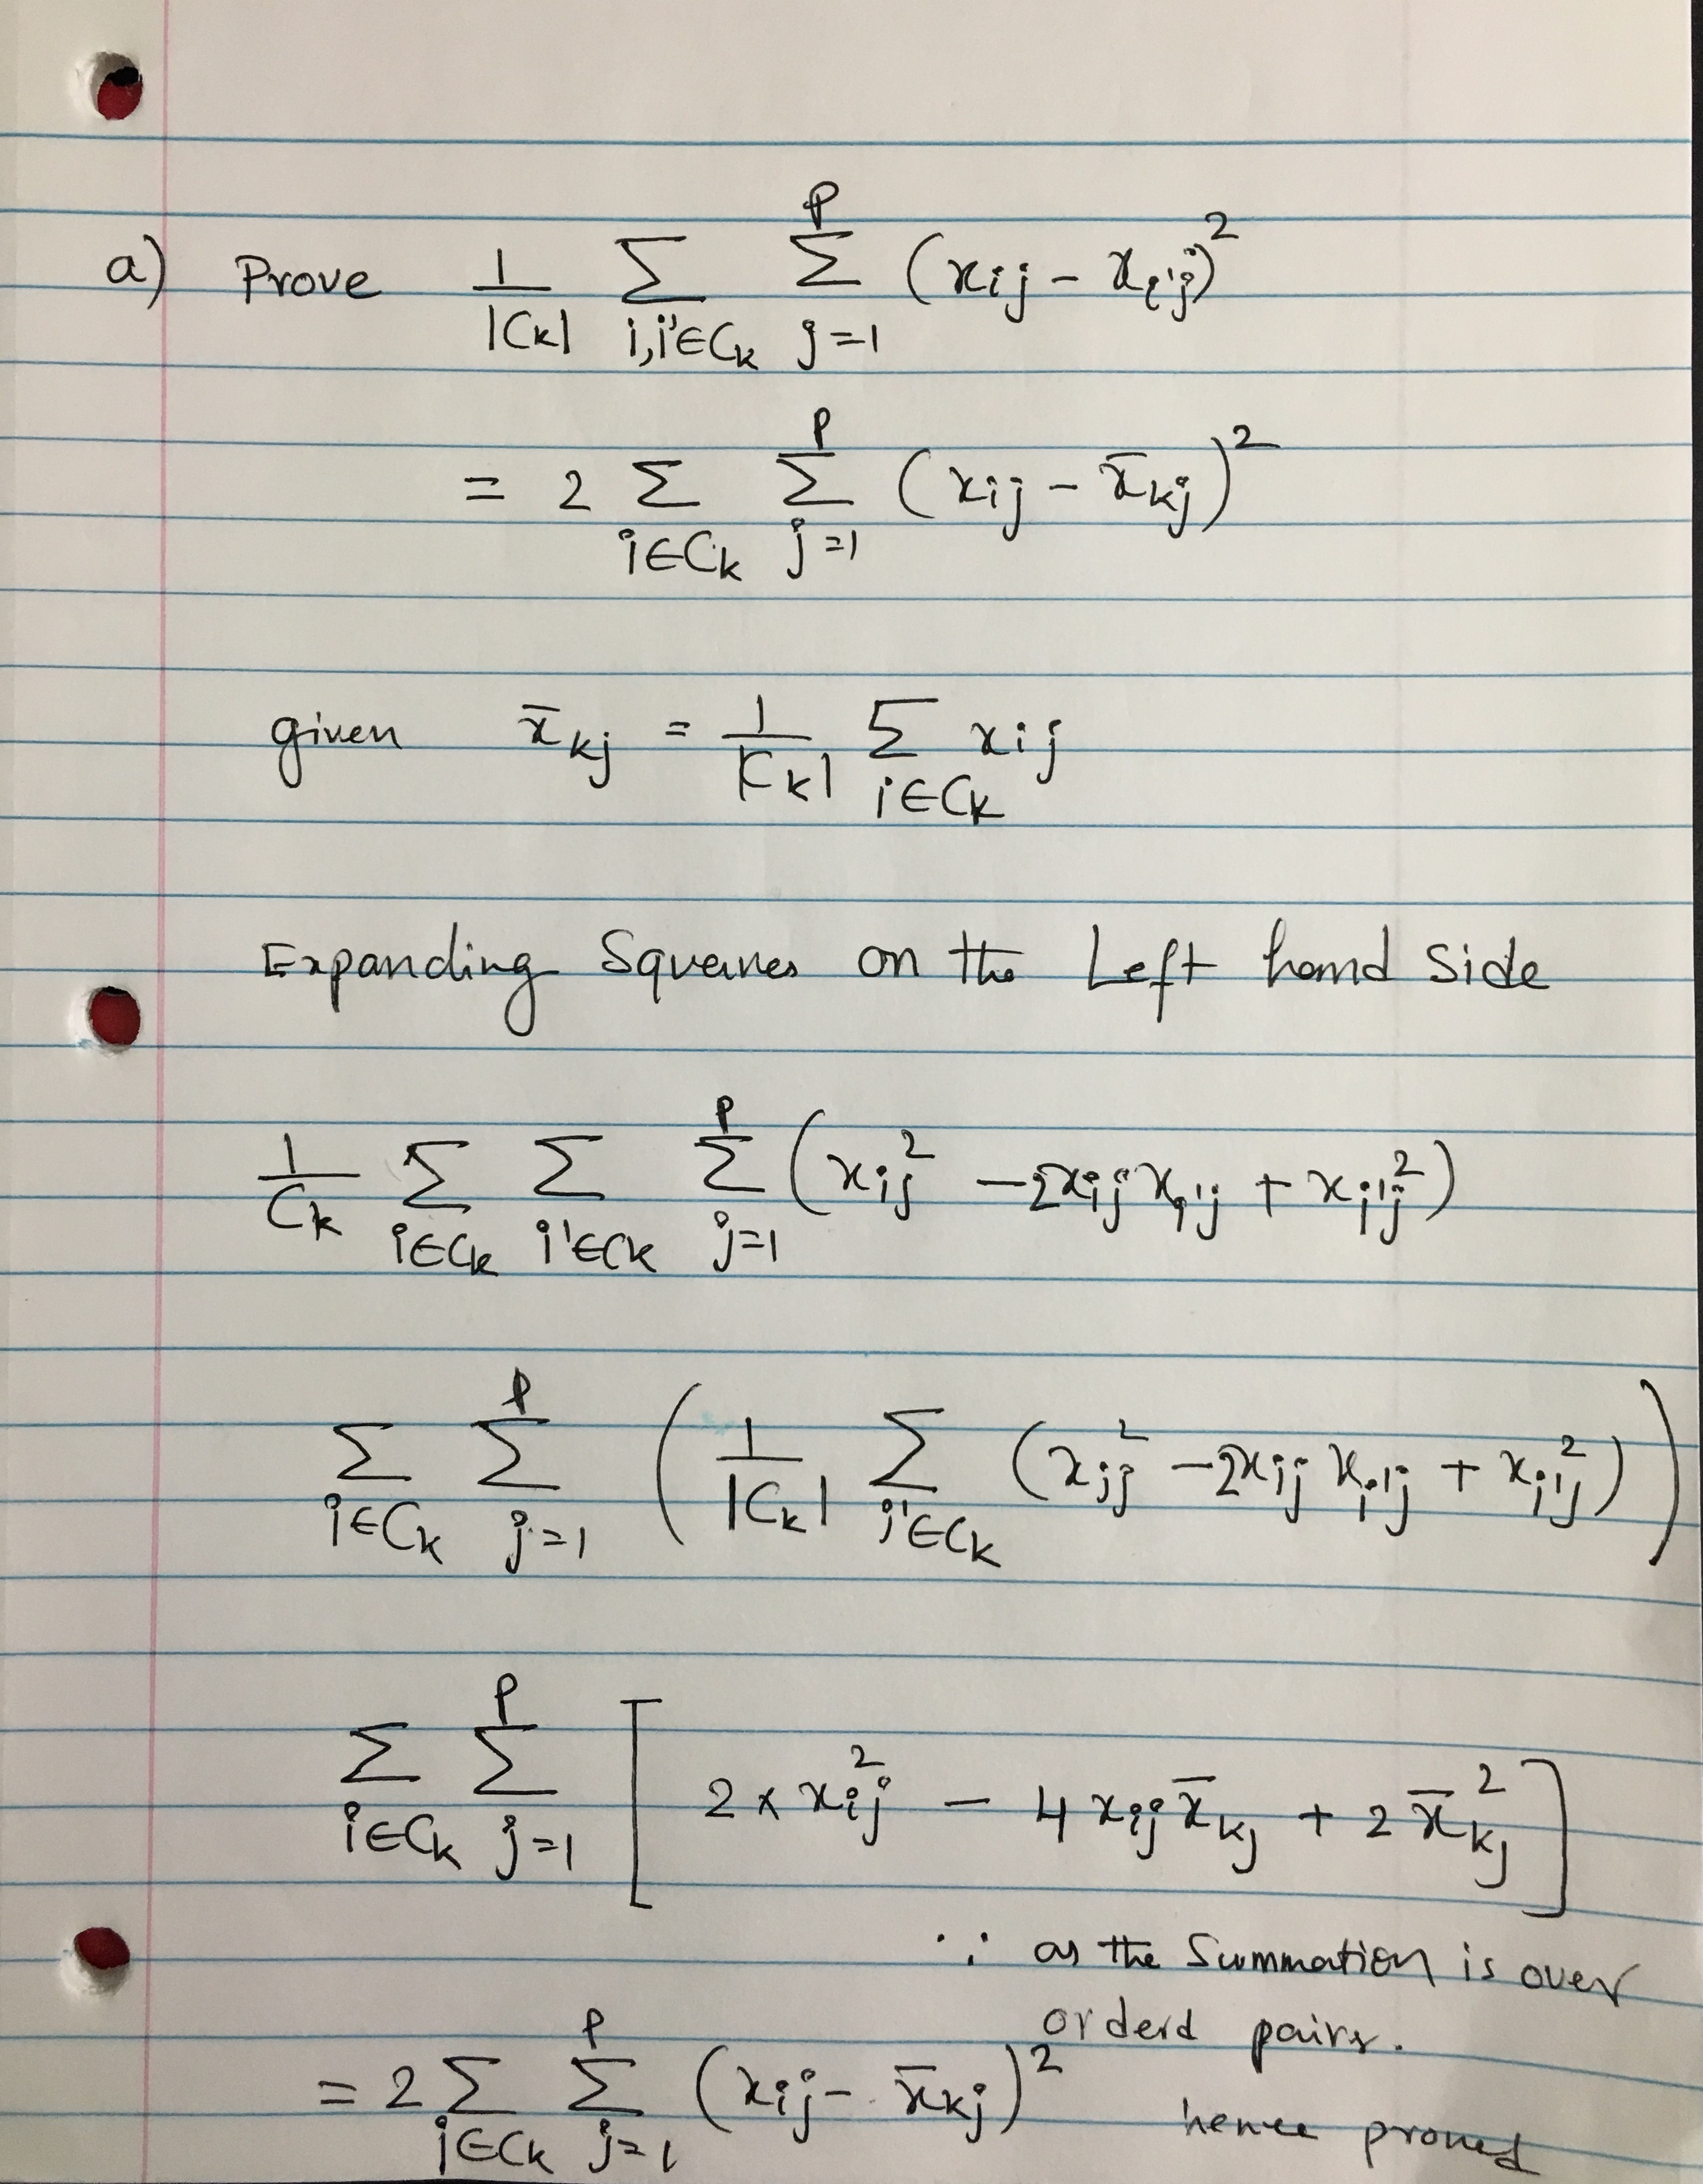 a) Prove 1/|Ck| Σ_{i,i'∈Ck} Σ_{j=1}^{p} (x_{ij} - x_{i'j})²
= 2 Σ_{i∈Ck} Σ_{j=1}^{p} (x_{ij} - x̄_{kj})²
given x̄_{kj} = 1/|Ck| Σ_{i∈Ck} x_{ij}
Expanding Squares on the Left hand Side
1/Ck Σ_{i∈Ck} Σ_{i'∈Ck} Σ_{j=1}^{p} (x_{ij}² - 2x_{ij} x_{i'j} + x_{i'j}²)
Σ_{i∈Ck} Σ_{j=1}^{p} (1/|Ck| Σ_{i'∈Ck} (x_{ij}² - 2x_{ij} x_{i'j} + x_{i'j}²))
Σ_{i∈Ck} Σ_{j=1}^{p} [2 × x_{ij}² - 4 x_{ij} x̄_{kj} + 2 x̄_{kj}²]
∵ as the Summation is over
orderd pairs.
= 2 Σ_{i∈Ck} Σ_{j=1}^{p} (x_{ij} - x̄_{kj})² hence proved